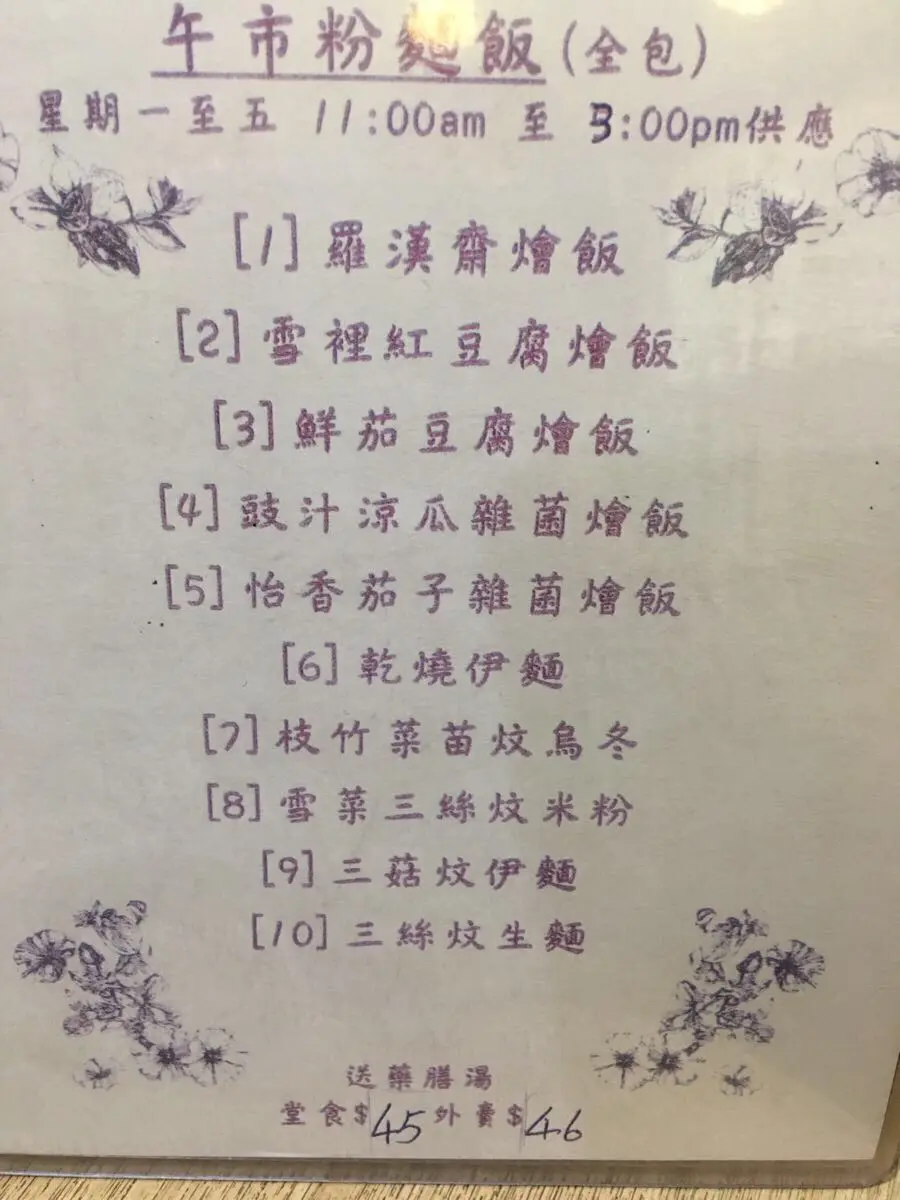 午市粉麵飯(全包)
星期一至五 11:00am 至 3:00pm供應
[1]羅漢齋燴飯
[2]雪裡紅豆腐燴飯
[3]鮮茄豆腐燴飯
[4]豉汁涼瓜雜菌燴飯
[5]怡香茄子雜菌燴飯
[6]乾燒伊麵
[7]枝竹菜苗炆烏冬
[8]雪菜三絲炆米粉
[9]三菇炆伊麵
[10]三絲炆生麵
送藥膳湯
堂食$45外賣$46